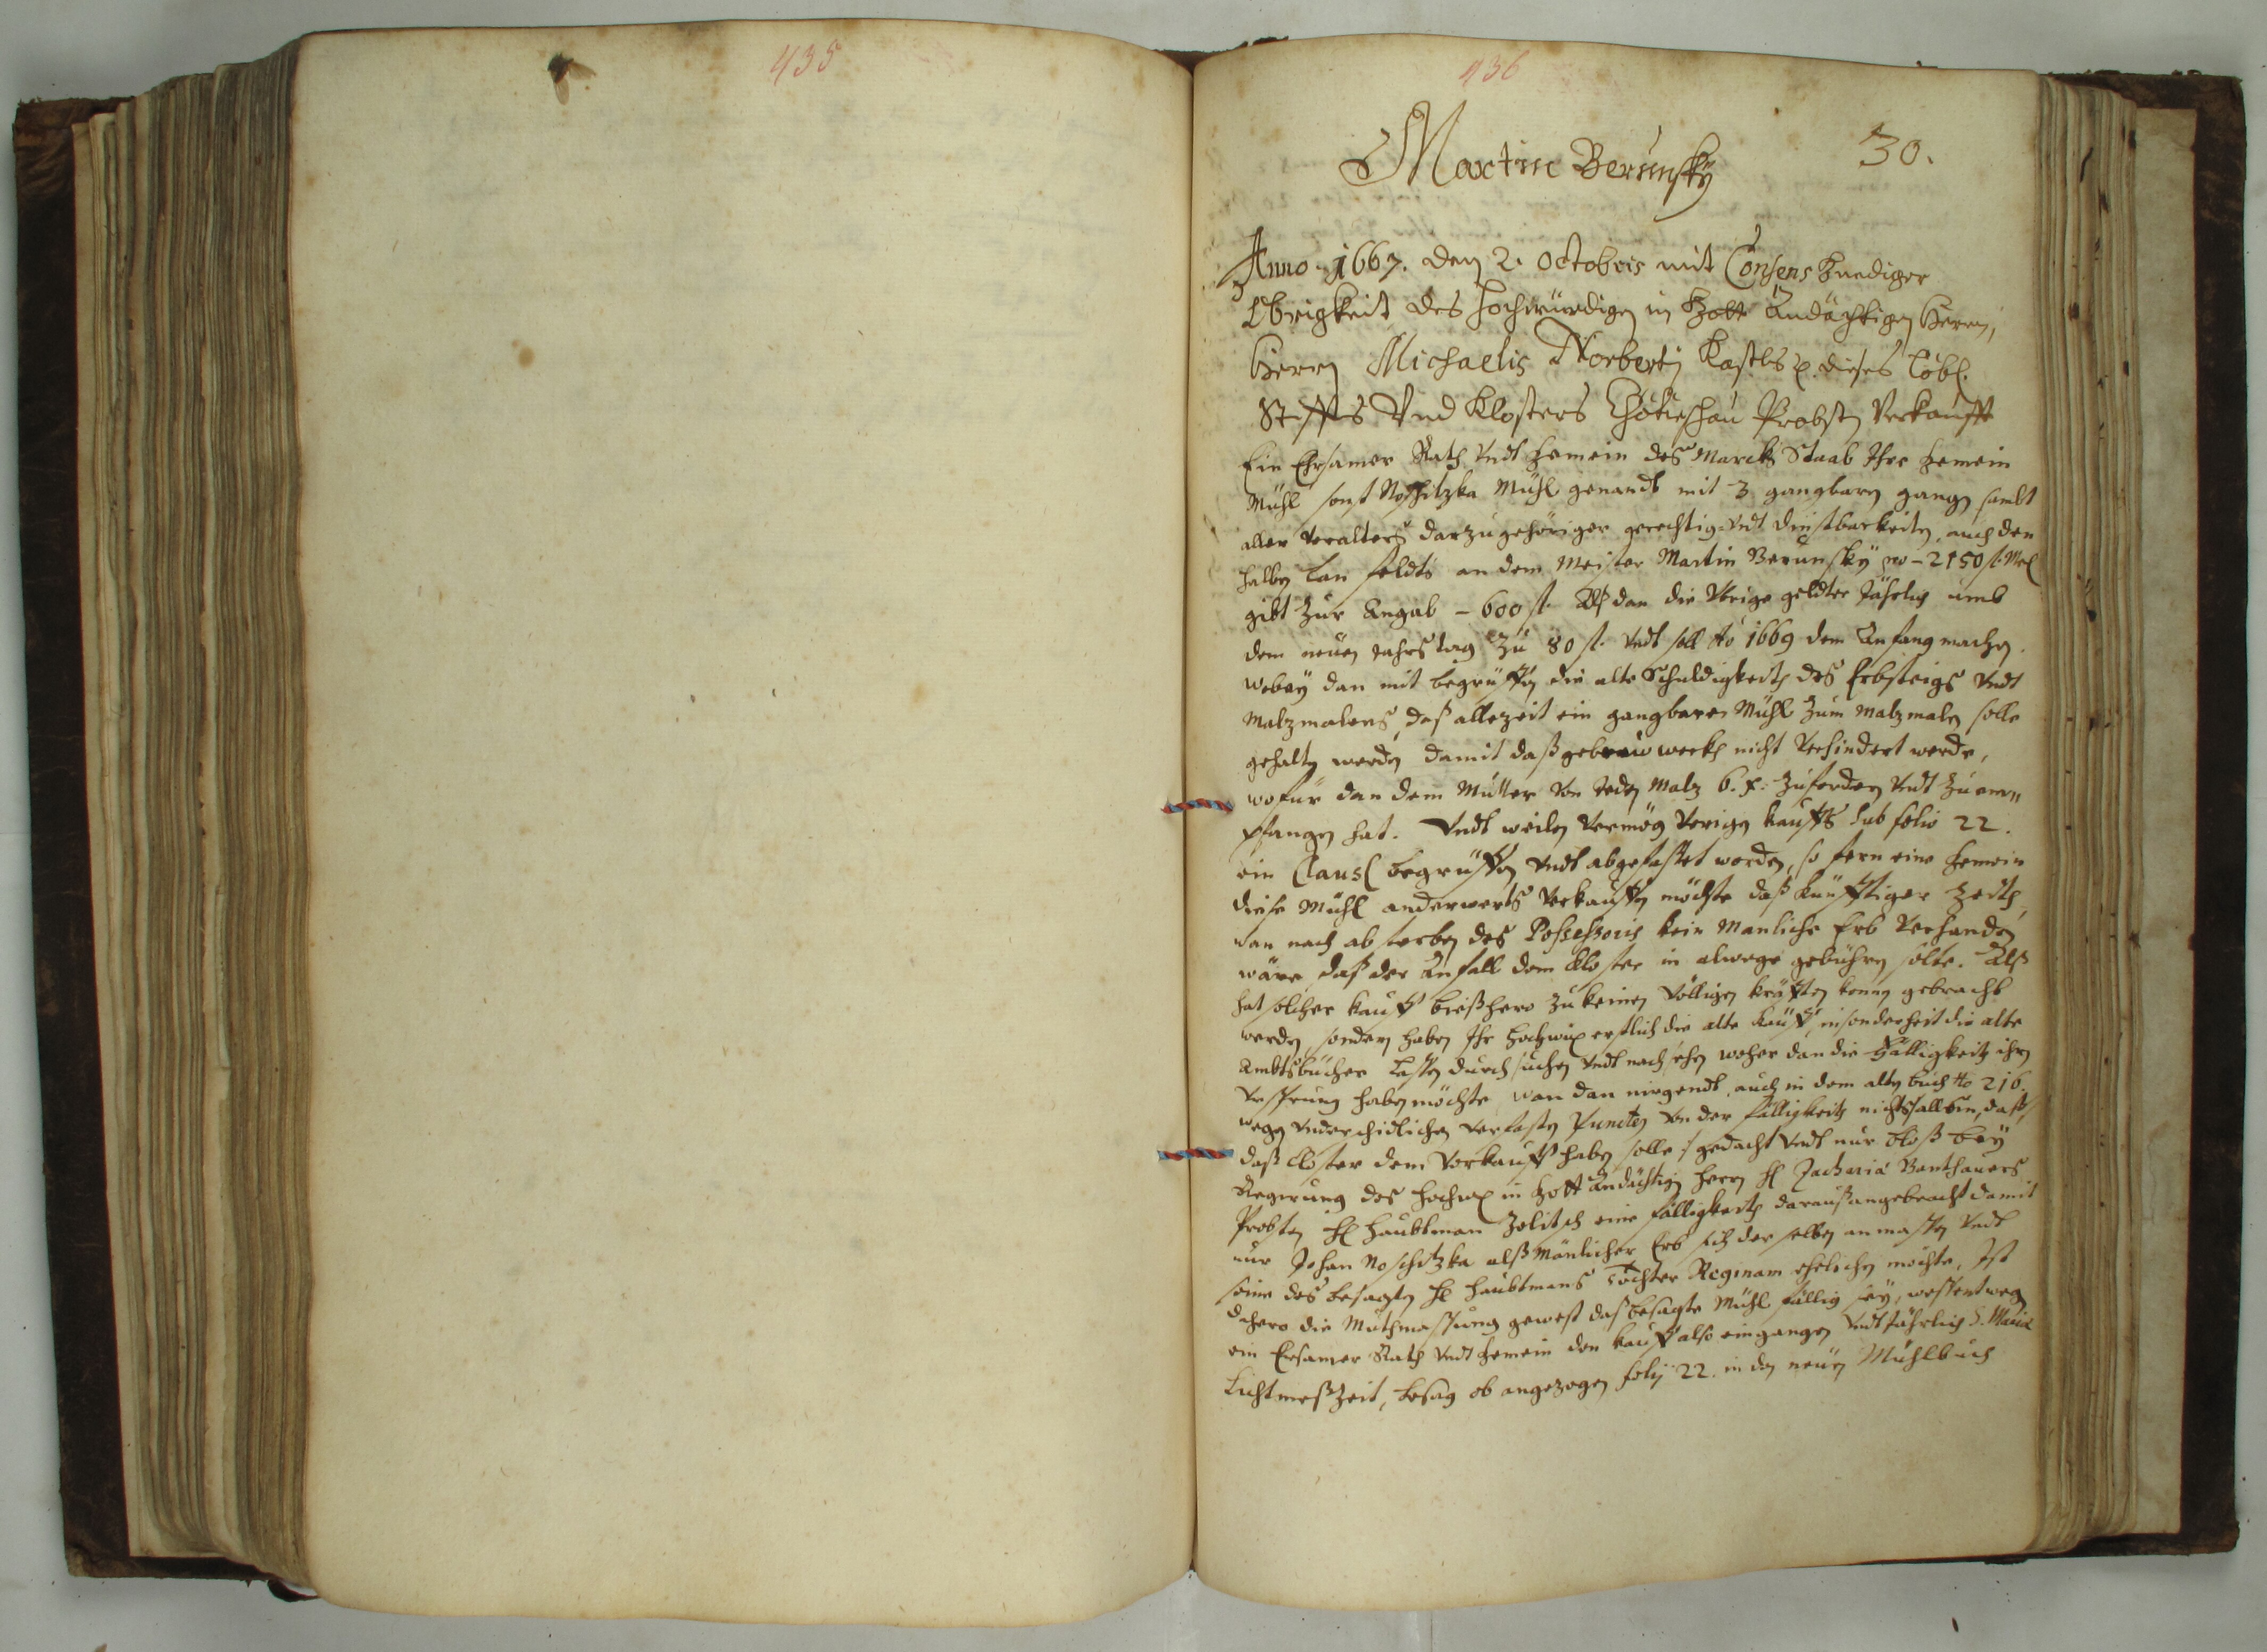 435
436
30.
Martin Berünskÿ
Anno. 1667. den 2. Octobris mit Consens Gnediger
Obrigkeit des Hochwürdigen in Gott Andächtigen Herrn,
Herrn Michaelis Norberti Kastls p. dieses Löbl.
Stiffts Vnd Klosters Chotieschau Probsten Verkaufft
Ein Ehrsamer Rath Vndt Gemein des Marckts Staab Ihre Gemein
Mühl sonst Noschitzka Mühl genandt mit 3 gangbarn gangen sambt
aller Veralters darzugehöriger gerechtig- Vndt dinstbarkeiten, auch den
halben Lan feldts an dem Meister Martin Berünskÿ pro – 2150 f.
gibt Zur Angab – 600 f. Alß dan die Vbrige geldter Jährlich umb
dem neüen Jahrs tag Zu 80 f. Vndt soll Ao 1669 dem Anfang machen.
Wobeÿ dan mit begrüffen die alte Schuldigkeith des Erbsteigs Vndt
Malzmalens, daß allezeit ein gangbare Mühl Zum malzmalen solle
gehalten werden damit daß gebreuwerckh nicht Verhindert werde,
wofür dan dem Müller Von Jeden Malz 6. x. Zufordern Vndt Zu em„
pfangen hat. Vndt weilen Vermög Vorigen kauffs sub folio 22.
ein Clausl begrüffen Vndt abgefasset worden, so fern eine Gemein
diese Mühl anderwerts Verkauffen möchte daß künfftiger Zeith,
wan nach absterben des Possessoris kein Manliche Erb Verhanden
wäre, daß der Anfall dem Kloster in alwege gebühren solte. Alß
hat solcher kauff bißhero Zu keinen Völligen kräfften konnen gebracht
werden, sondern haben Ihr Hochw erstlich die alte Käuff, insonderheit die alte
Ambtsbücher Lassen durchsuchen Vndt nachsehen woher dan die Fälligkeith ihren
Vrsprung haben möchte, wan dan nirgendt, auch in dem alten buch fo 216.
wegen Vnderschidlichen Verfasten Puncten Von der fälligkeith nichts/: allein, daß
daß Closter dem Vorkauff haben solle :/ gedacht Vndt nur bloß beÿ
Regirung des Hochw in Gott Andächtigen Herrn H Zachariae Banthauers
Probsten H Haubtman Zelitsch eine fälligkeith darauß angebracht damit
nur Johan Noschitzka alß Manlicher Erb sich der selben anmassen Vndt
seine des besagten H Haubtmans Tochter Reginam ehelichen möchte, Ist
dahero die Muthmassung gewest daß besagte Mühl fällig seÿ, wessentwegen
ein Ersamer Rath Vndt Gemein den kauff also eingangen Vndt Jährlich S. Mariae
Lichtmeßzeit, besag ob angezogen folij 22. in den neüen Mühlbuch